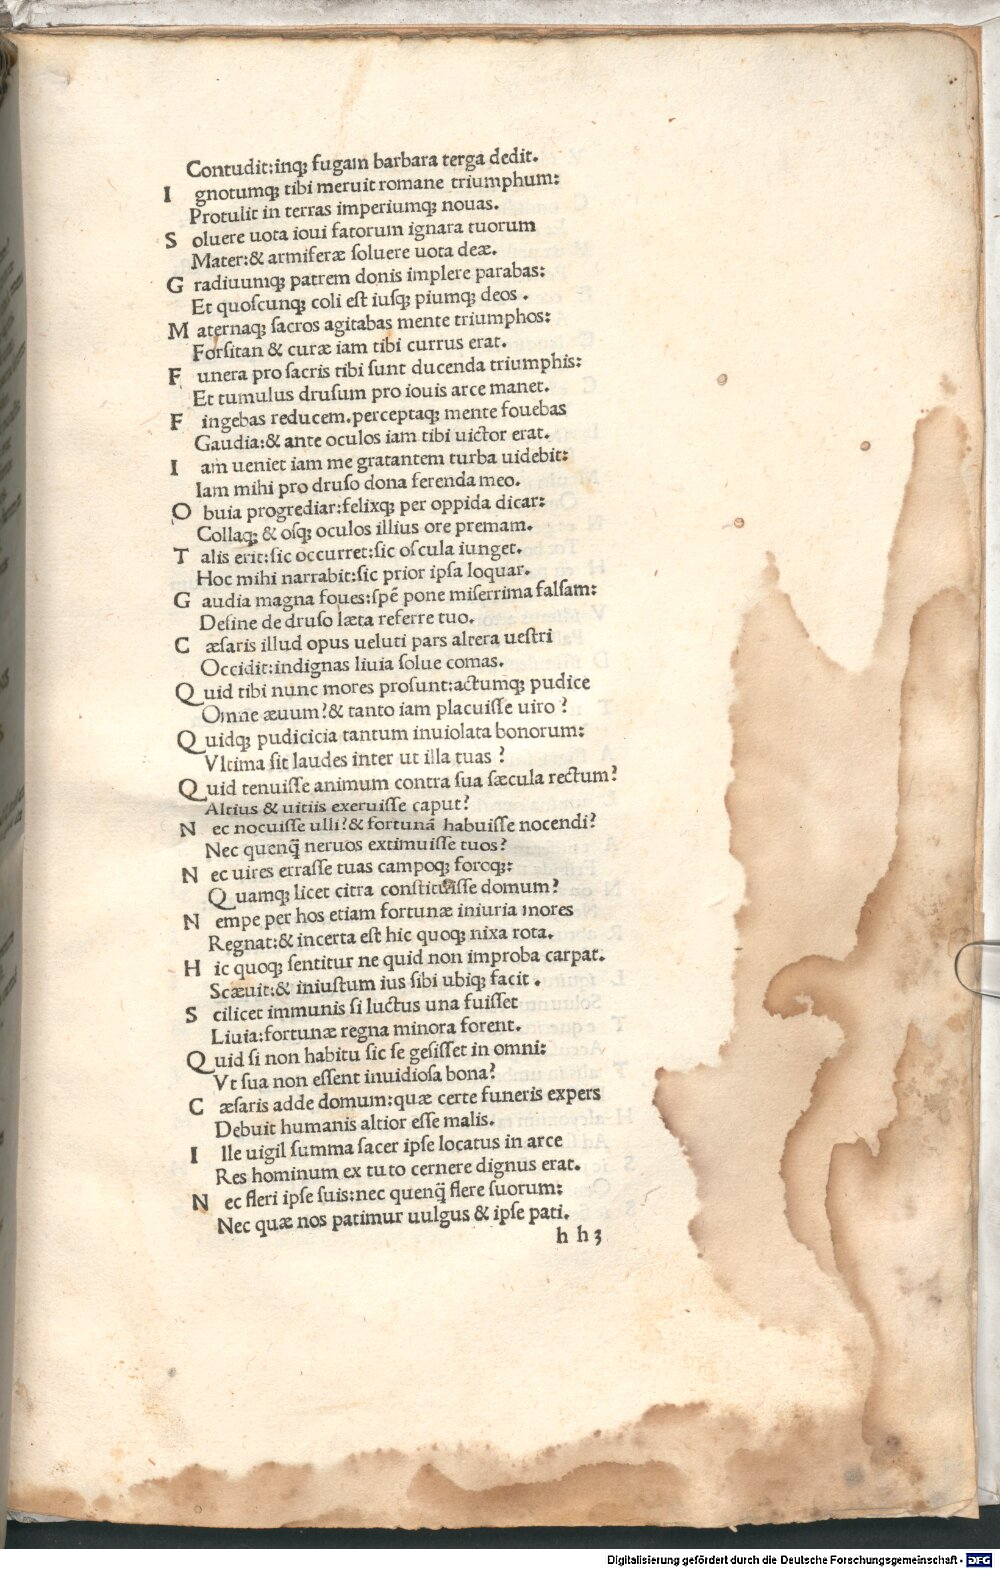 Contudit:inq; fugam barbara terga dedit.
I gnotumq; tibi meruit romane triumphum:
Protulit in terras imperiumq; nouas.
S oluere uota ioui fatorum ignara tuorum
Mater:& armiferæ soluere uota deæ.
G radiuumq; patrem donis implere parabas:
Et quoscunq; coli est iusq; piumq; deos.
M aternaq; sacros agitabas mente triumphos:
Forsitan & curæ iam tibi currus erat.
F unera pro sacris tibi sunt ducenda triumphis:
Et tumulus drusum pro iouis arce manet.
F ingebas reducem.perceptaq; mente fouebas
Gaudia:& ante oculos iam tibi uictor erat.
I am ueniet iam me gratantem turba uidebit:
Iam mihi pro druso dona ferenda meo.
O buia progrediar:felixq; per oppida dicar:
Collaq; & osq; oculos illius ore premam.
T alis erit:sic occurret:sic oscula iunget.
Hoc mihi narrabit:sic prior ipsa loquar.
G audia magna foues:spē pone miserrima falsam:
Desine de druso læta referre tuo.
C æsaris illud opus ueluti pars altera uestri
Occidit:indignas liuia solue comas.
Q uid tibi nunc mores prosunt:actumq; pudice
Omne æuum?& tanto iam placuisse uiro?
Q uidq; pudicicia tantum inuiolata bonorum:
Vltima sit laudes inter ut illa tuas?
Q uid tenuisse animum contra sua sæcula rectum?
Altius & uitiis exeruisse caput?
N ec nocuisse ulli?& fortunā habuisse nocendi?
Nec quenq̄ neruos extimuisse tuos?
N ec uires errasse tuas campoq; foroq;:
Quamq; licet citra constituisse domum?
N empe per hos etiam fortunæ iniuria mores
Regnat:& incerta est hic quoq; nixa rota.
H ic quoq; sentitur ne quid non improba carpat.
Scæuit:& iniustum ius sibi ubiq; facit.
S cilicet immunis si luctus una fuisset
Liuia:fortunæ regna minora forent.
Q uid si non habitu sic se gesisset in omni:
Vt sua non essent inuidiosa bona?
C æsaris adde domum:quæ certe funeris expers
Debuit humanis altior esse malis.
I lle uigil summa sacer ipse locatus in arce
Res hominum ex tuto cernere dignus erat.
N ec fleri ipse suis:nec quenq̄ flere suorum:
Nec quæ nos patimur uulgus & ipse pati.
h h 3
Digitalisierung gefördert durch die Deutsche Forschungsgemeinschaft - DFG